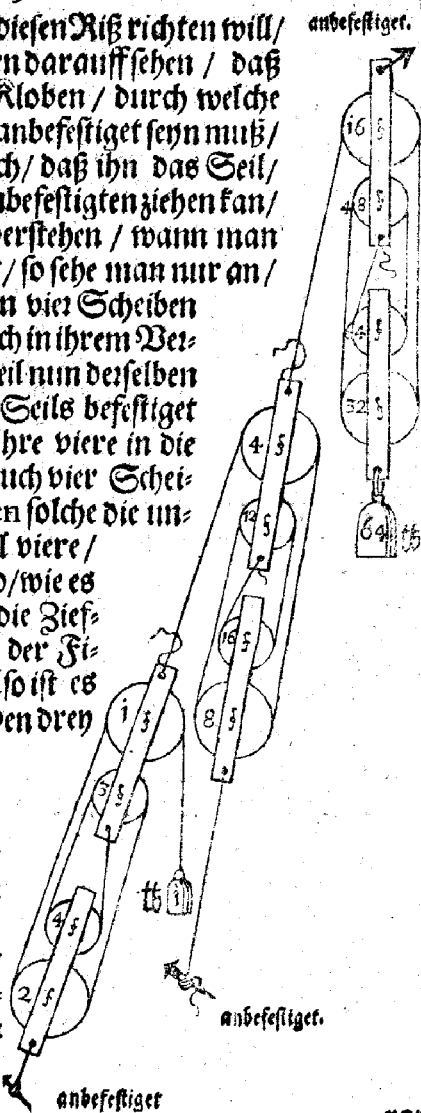 diesen Riß richten will/
en darauff sehen / daß
Kloben / durch welche
anbefestiget seyn muß/
ch/ daß ihn das Seil/
nbefestigten ziehen kan/
verstehen / wann man
/ so sehe man nur an/
n vier Scheiben
ch in ihrem Ver-
eil nun derselben
Seils befestiget
hre viere in die
uch vier Schei-
en solche die un-
l viere/
o/wie es
die Zief-
der Fi-
lso ist es
en drey
anbefestiget.
16
8
4
32
64 ℔
4
12
16
8
1
3
4
2
℔ 1
anbefestiget.
anbefestiget